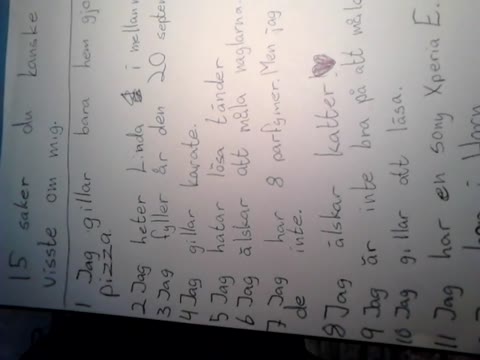 15 saker du kanske
visste om mig.
1 Jag gillar bara hem gjo
pizza.
2 Jag heter Linda i mellann
3 Jag fyller år den 20 septem
4 Jag gillar karate.
5 Jag hatar lösa tänder
6 Jag älskar att måla naglarna.
7 Jag har 8 parfymer. Men jag
de inte.
8 Jag älskar katter
9 Jag är inte bra på att måla
10 Jag gillar att läsa.
11 Jag har en sony Xperia E.